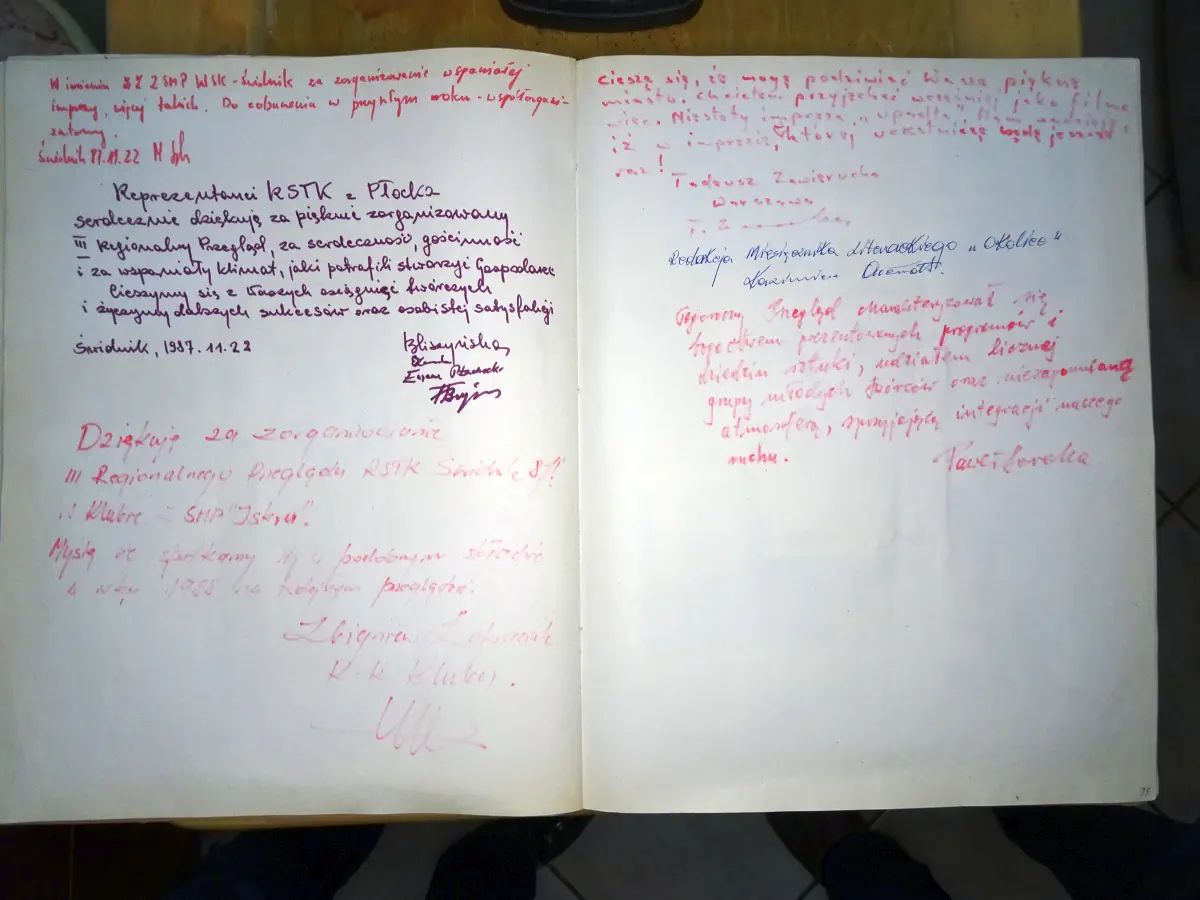 W imieniu ZZ ZSMP WSK-Świdnik za zorganizowanie wspaniałej
imprezy, więcej takich. Do zobaczenia w przyszłym roku - współorgani-
zatorzy.
Świdnik 87.11.22
Reprezentanci RSTK z Płocka
serdecznie dziękują za pięknie zorganizowany
III Regionalny Przegląd, za serdeczność, gościnność
i za wspaniały klimat, jaki potrafili stworzyć Gospodarze
Cieszymy się z Waszych osiągnięć twórczych
i życzymy dalszych sukcesów oraz osobistej satysfakcji
Świdnik, 1987.11.22
Dziękuję za zorganizowanie
III Regionalnego Przeglądu RSTK Świdnik 87!
w Klubie ZSMP "Iskra".
Myślę że spotkamy się w podobnym składzie
w roku 1988 na kolejnym przeglądzie.
Zbigniew
K-k Klubu.
Cieszę się, że mogę podziwiać Wasze piękne
miasto. Chciałem przyjechać wcześniej jako filmo
wiec. Niestety impreza "upadła". Mam nadzieję,
iż w imprezie, której uczestniczę będę jeszcze
raz!
Tadeusz Zawierucha
Warszawa
Redakcja Miesięcznika Literackiego "Okolice"
Kazimierz
Tegoroczny Przegląd charakteryzował się
bogactwem prezentowanych programów i
dziedzin sztuki, udziałem licznej
grupy młodych twórców oraz niezapomnianą
atmosferą, sprzyjającą integracji naszego
ruchu.
Paweł Soroka
75